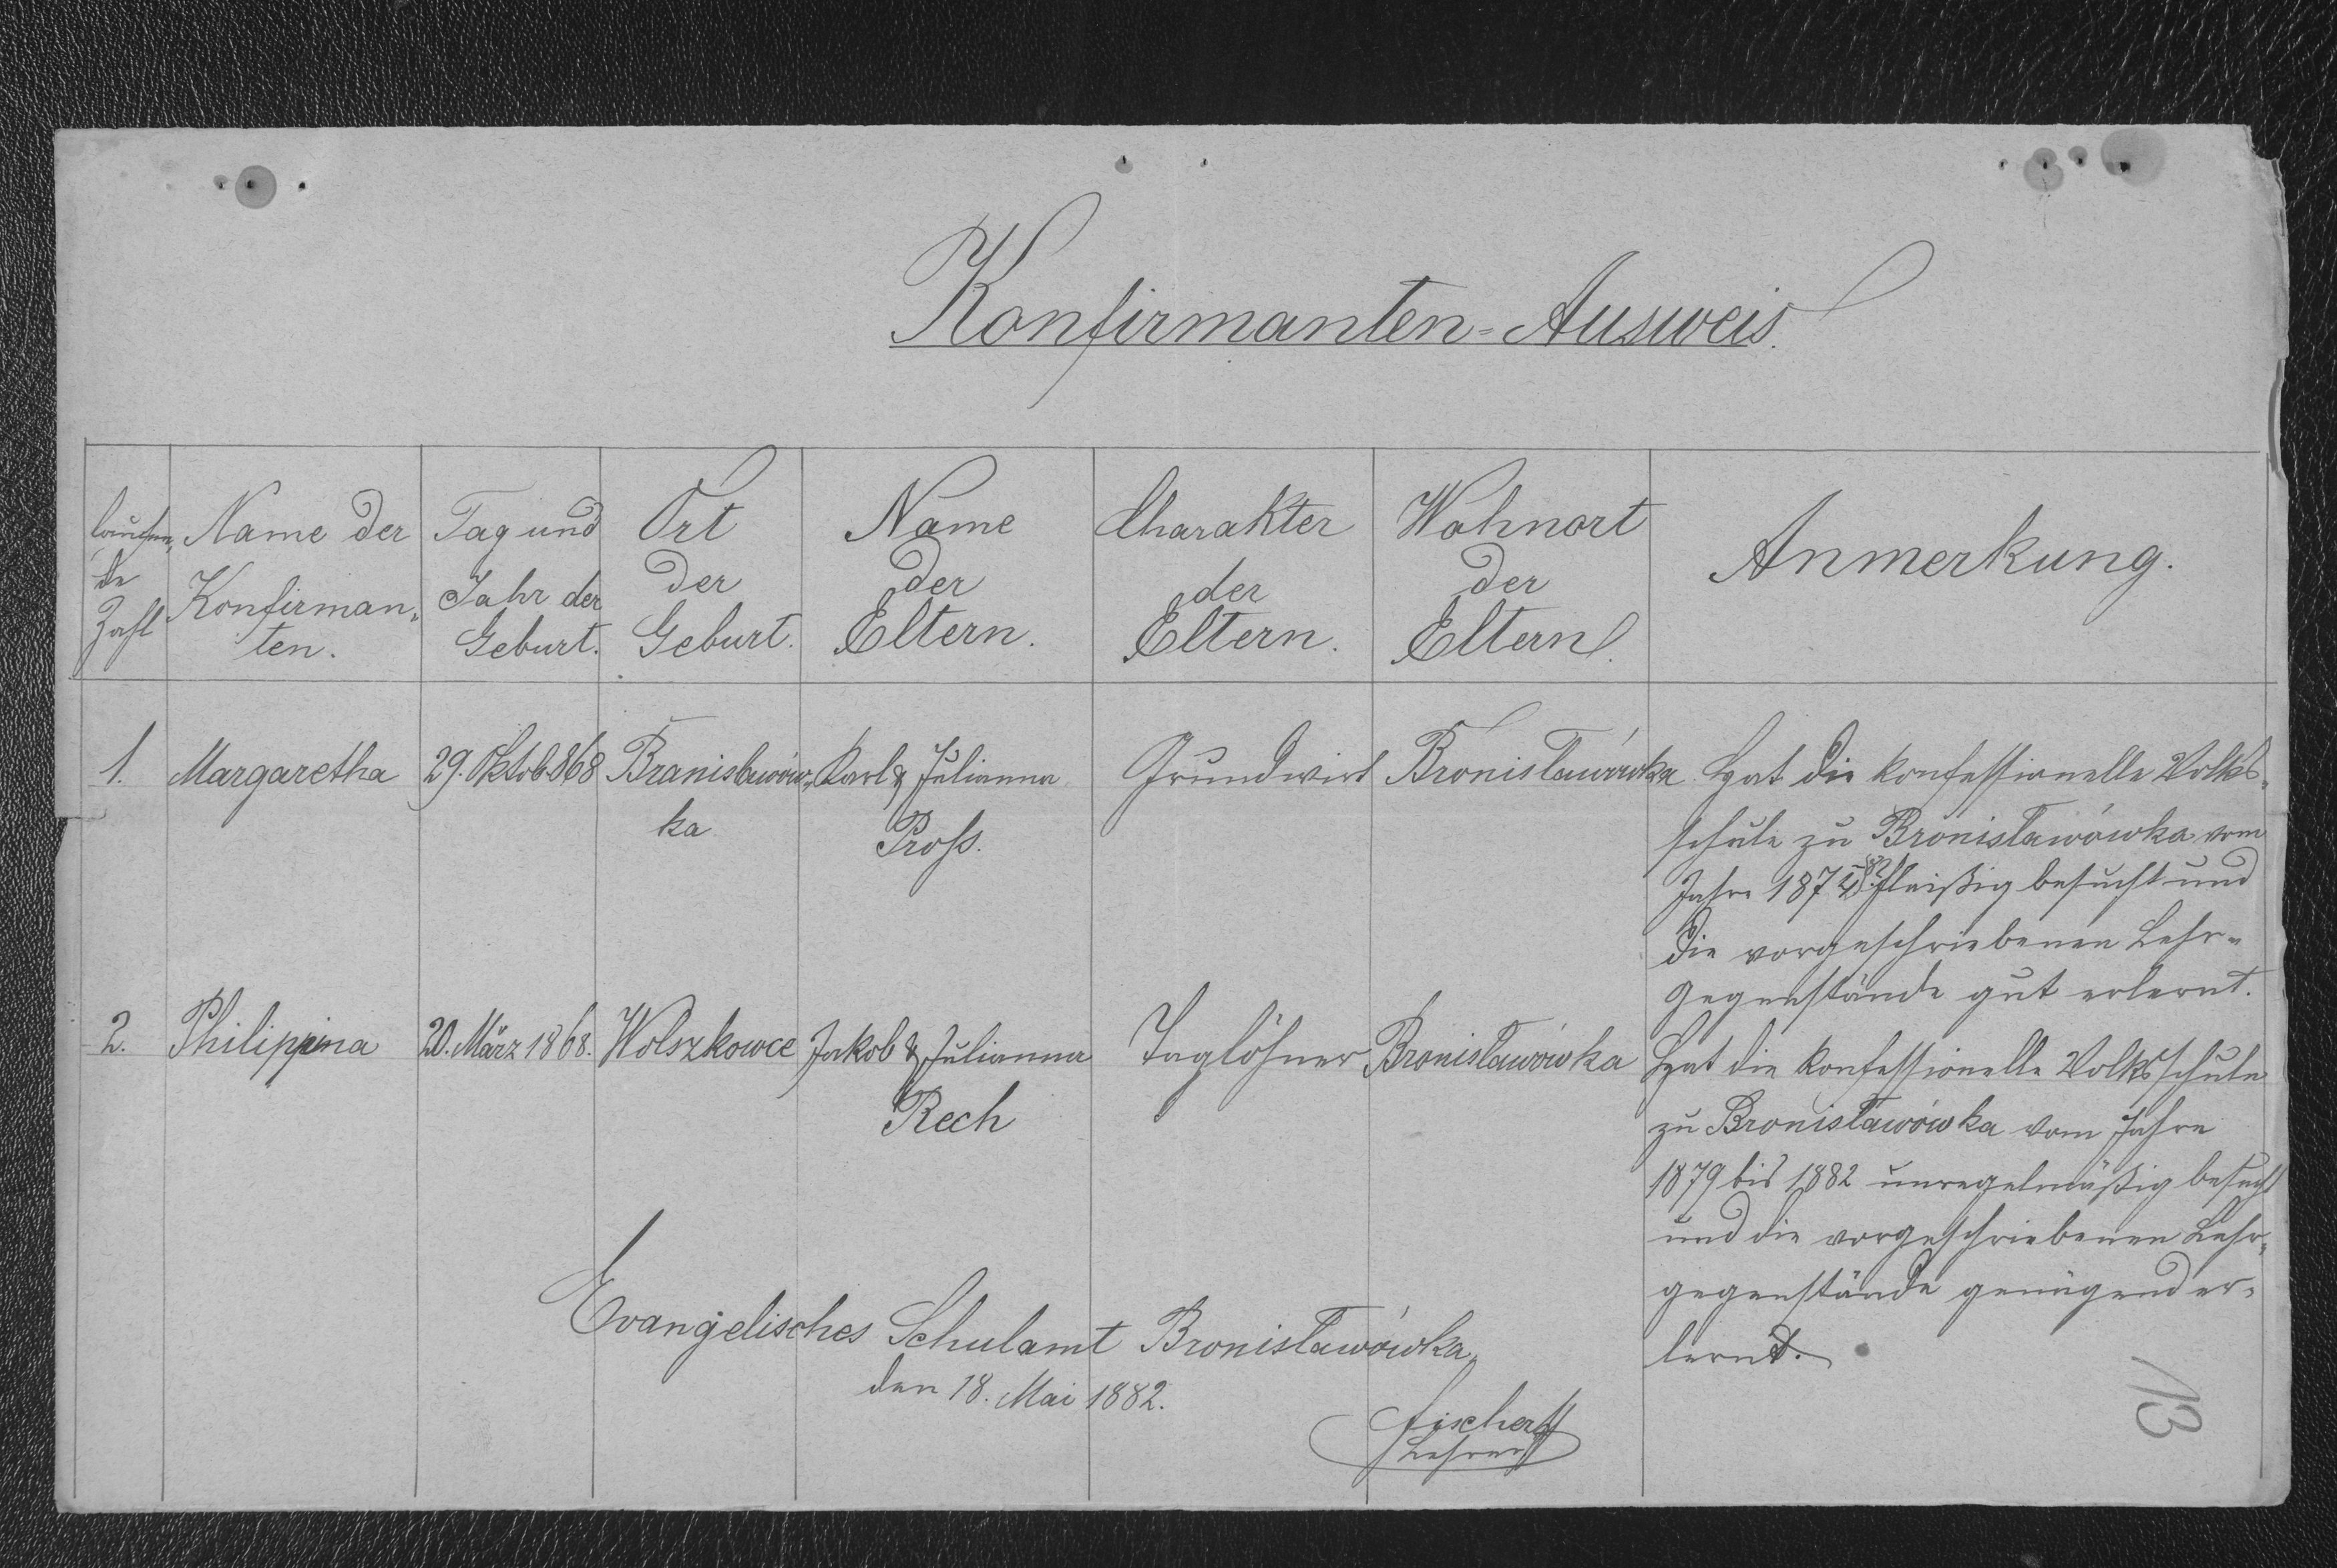 Konfirmanten-Ausweis.
laufen-
de
Zahl
Name der
Konfirman-
ten.
Tag und
Jahr der
Geburt.
Ort
der
Geburt.
Name
der
Eltern.
Charakter
der
Eltern.
Wohnort
der
Eltern.
Anmerkung.
1.
Margaretha
29. Oktob. 868
Branisławów-
ka
Karl & Julianna
Proß.
Grundwirt
Bronisławówka
Hat die konfessionelle Volks-
schule zu Bronisławówka vom
Jahre 187 fleißig besucht und
die vorgeschriebenen Lehr-
gegenstände gut erlernt.
2.
Philippina
20. März 1868.
Wolszkowce
Jakob & Julianna
Rech
Taglöhner
Bronisławówka
Hat die konfessionelle Volksschule
zu Bronisławówka vom Jahre
1879 bis 1882 unregelmäßig besucht
und die vorgeschriebenen Lehr-
gegenstände genügend er-
lernt.
Evangelisches Schulamt Bronisławówka,
den 18. Mai 1882.
Fischer
Lehrer
13